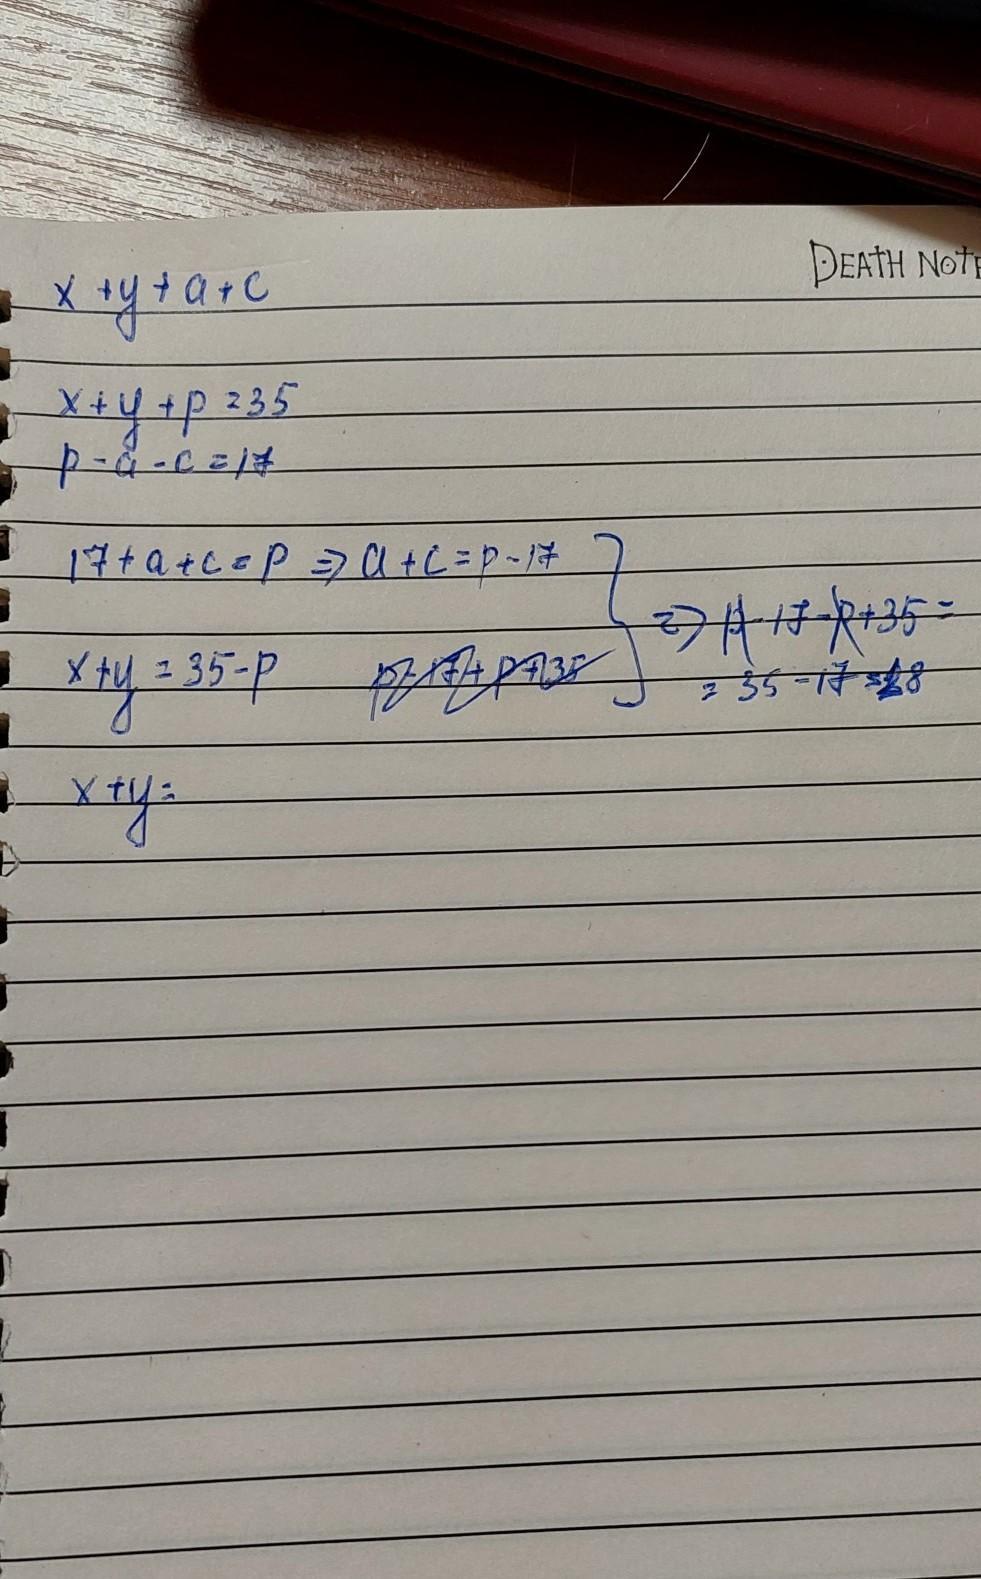 DEATH NOTE
x+y+a+c
x+y+p=35
p-a-c=17
17+a+c=p ⇒ a+c=p-17
⇒ p-17-p+35=
x+y=35-p p-17+p+35
= 35-17=18
x+y=